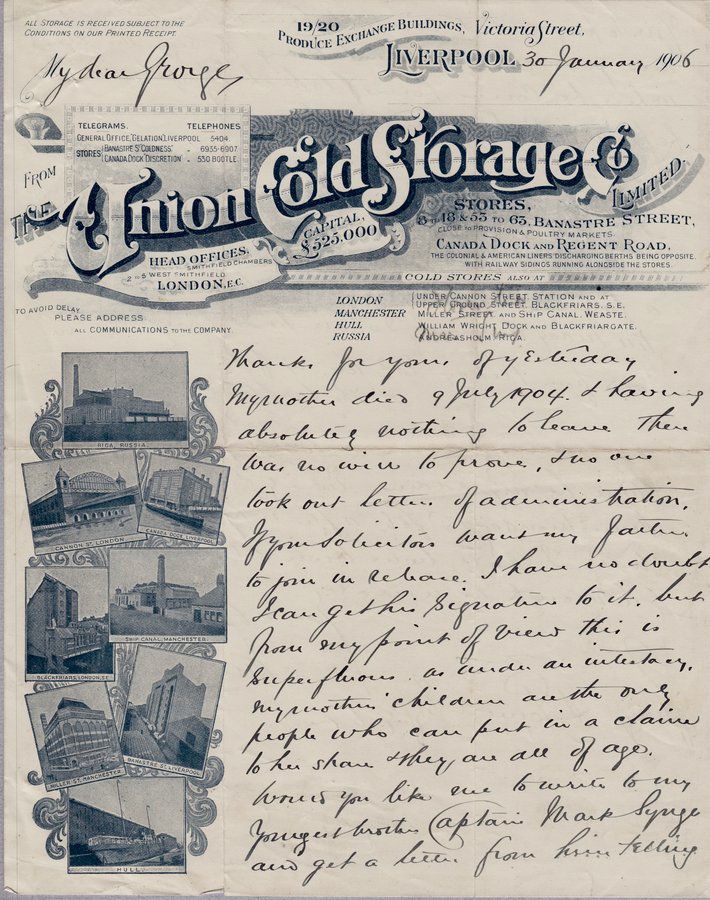 ALL STORAGE IS RECEIVED SUBJECT TO THE
CONDITIONS ON OUR PRINTED RECEIPT.
19/20
PRODUCE EXCHANGE BUILDINGS, Victoria Street,
LIVERPOOL 30 January 1906
My dear George,
TELEGRAMS. TELEPHONES
GENERAL OFFICE, "GELATION", LIVERPOOL 5404.
STORES BANASTRE ST "COLDNESS" " 6935-6907.
CANADA DOCK "DISCRETION" " 530 BOOTLE.
FROM
THE Union Cold Storage Co LIMITED.
CAPITAL,
£525,000
HEAD OFFICES,
SMITHFIELD CHAMBERS
2 TO 5 WEST SMITHFIELD.
LONDON, E.C.
STORES,
8 TO 18 & 53 TO 63, BANASTRE STREET,
CLOSE TO PROVISION & POULTRY MARKETS.
CANADA DOCK AND REGENT ROAD,
THE COLONIAL & AMERICAN LINERS DISCHARGING BERTHS BEING OPPOSITE.
WITH RAILWAY SIDINGS RUNNING ALONGSIDE THE STORES.
COLD STORES ALSO AT
LONDON UNDER CANNON STREET STATION AND AT
UPPER GROUND STREET. BLACKFRIARS. S.E.
MANCHESTER MILLER STREET AND SHIP CANAL. WEASTE.
HULL WILLIAM WRIGHT DOCK AND BLACKFRIARGATE.
RUSSIA ANDREASHOLM, RIGA.
TO AVOID DELAY
PLEASE ADDRESS
ALL COMMUNICATIONS TO THE COMPANY.
Thanks for yours of yesterday
My mother died 9 July 1904. & having
absolutely nothing to leave there
was no will to prove, & no one
took out letters of administration.
If your Solicitors want my father
to join in release. I have no doubt
I can get his Signature to it. but
from my point of view this is
superfluous. as under an intestacy,
my mothers' children are the only
people who can put in a claim
to her share & they are all of age.
Would you like me to write to my
youngest brother Captain Mark Synge
and get a letter from him telling
RIGA, RUSSIA.
CANNON ST. LONDON
CANADA DOCK LIVERPOOL
BLACKFRIARS, LONDON, S.E.
SHIP CANAL, MANCHESTER.
MILLER ST. MANCHESTER
BANASTRE ST. LIVERPOOL
HULL